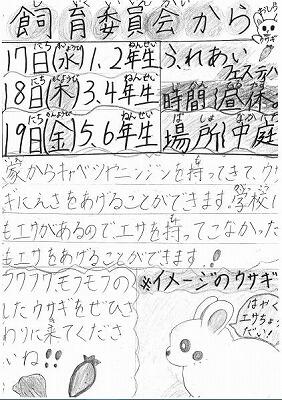 飼育委員会から
17日(水)1.2年生
18日(木)3.4年生
19日(金)5.6年生
ふれあい
フェスティバ
時間昼休
場所中庭
家からキャベツやニンジンを持ってきて、ウ
ギにえさをあげることができます。学校に
もエサがあるので、エサを持ってこなかった
もエサをあげることができます。
フワフワ、モフモフの
したウサギをぜひさ
わりに来てくださ
いね
※イメージのウサギ
はやく
エサちょう
だい!